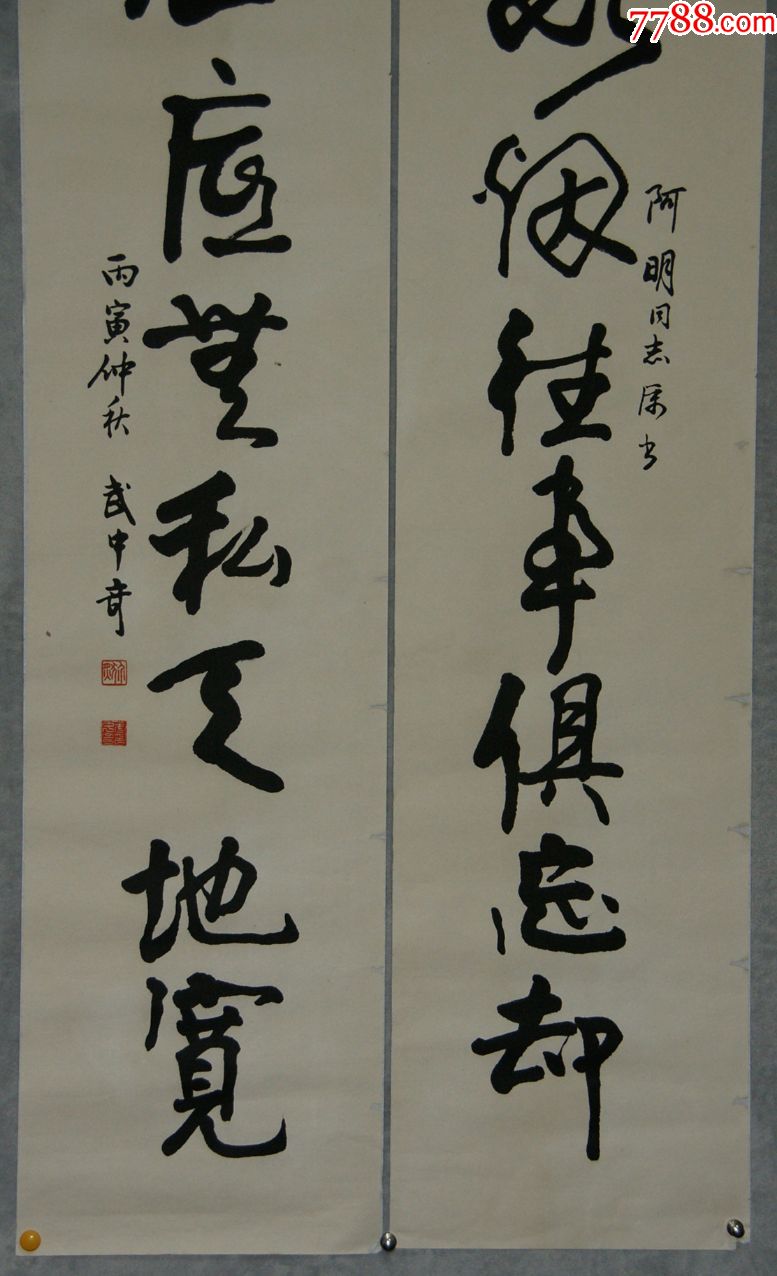 阿明同志属书
烟往事俱忘却
底無私天地寬
丙寅仲秋 武中奇
7788.com